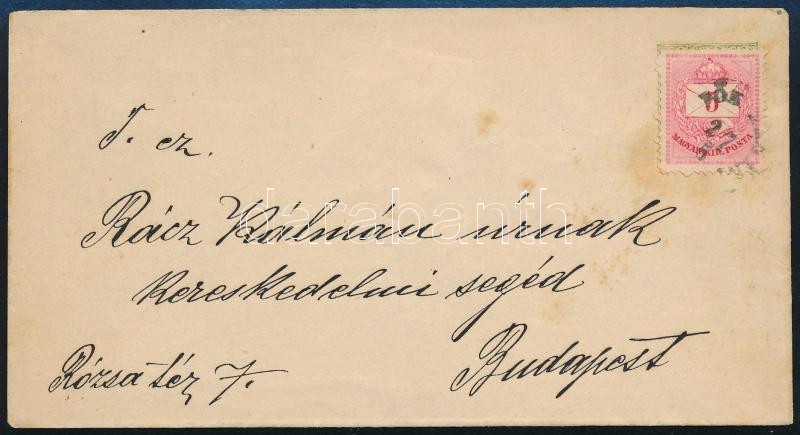 T. cz.
Rácz Kálmán úrnak
kereskedelmi segéd
Budapest
Rózsa tér 7.
5
MAGYAR KIR. POSTA
darabanth